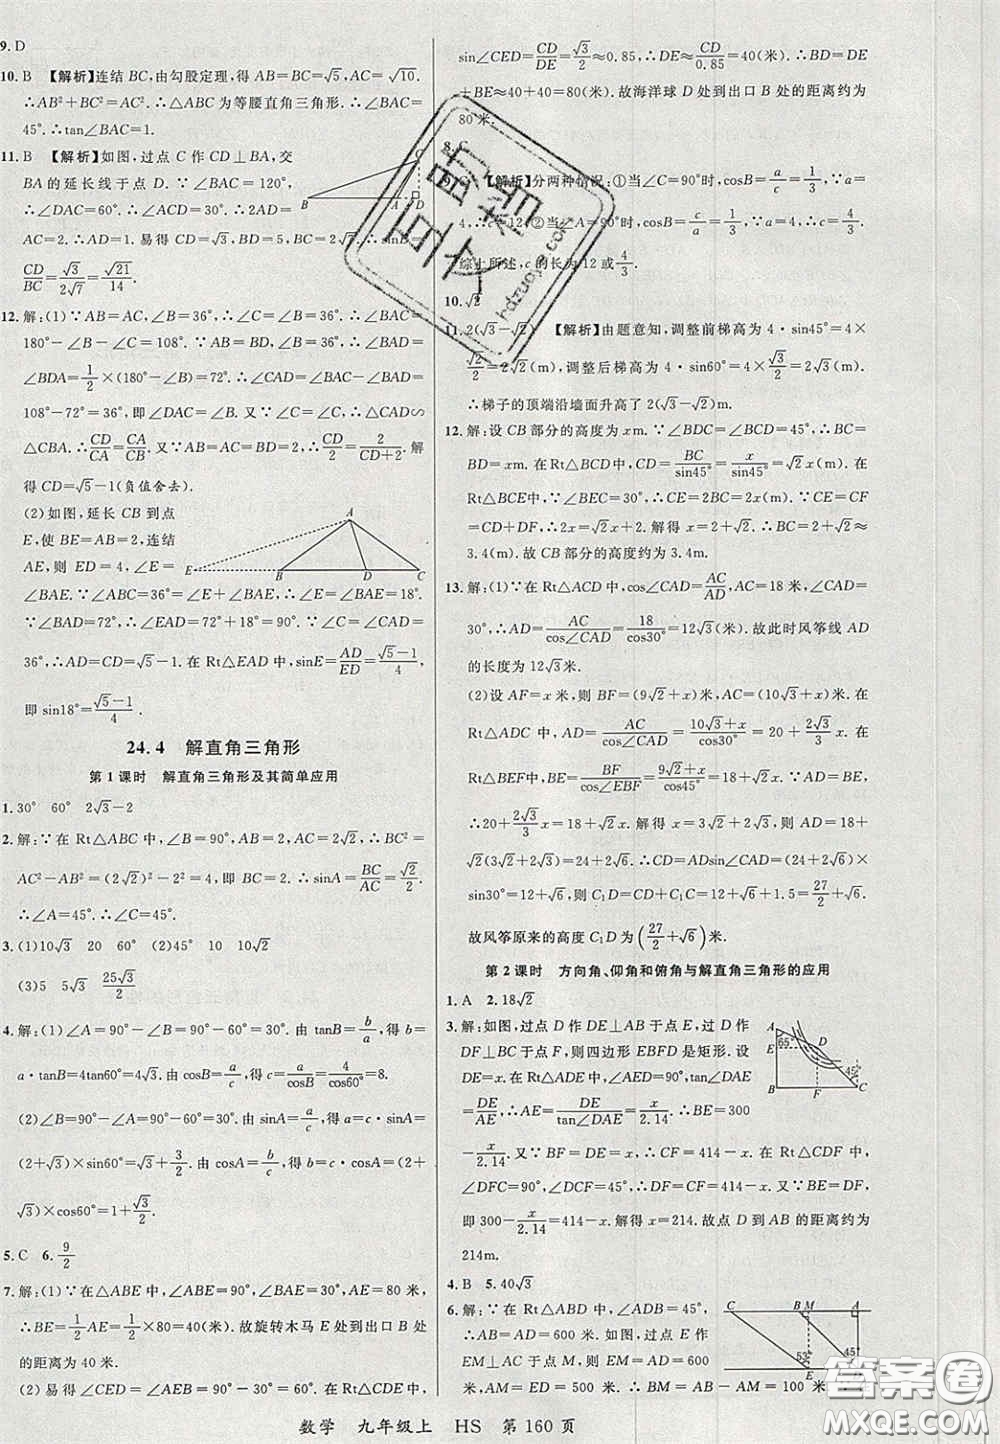 9. D
10. B 【解析】连结 BC,由勾股定理,得 AB=BC=√5,AC=√10.
∴AB²+BC²=AC².∴△ABC 为等腰直角三角形.∴∠BAC=
45°.∴tan∠BAC=1.
11. B 【解析】如图,过点 C 作 CD⊥BA,交
BA 的延长线于点 D.∵∠BAC=120°,
∴∠DAC=60°.∴AC=2AD.∵AB=4,
AC=2.∴AD=1.∴易得 CD=√3,BC=2√7.∴sinB=
CD/BC=√3/(2√7)=√21/14.
12. 解:(1)∵AB=AC,∠B=36°,∴∠C=∠B=36°.∴∠BAC=
180°-∠B-∠C=108°.∵AB=BD,∴∠BAD=
∠BDA=1/2×(180°-∠B)=72°.∴∠DAC=∠BAC-∠BAD=
108°-72°=36°,即∠DAC=∠B.又∵∠C=∠C,∴△CAD∽
△CBA.∴CD/CA=CA/CB.又∵AB=AC=BD=2,∴CD/2=2/(CD+2).解
得 CD=√5-1(负值舍去).
(2)如图,延长 CB 到点
E,使 BE=AB,连结
AE,则∠E
=∠BAE.∵∠ABC=∠E+∠BAE=36°,∴∠E=∠BAE=18°.
∵∠BAD=72°,∴∠DAE=72°+18°=90°.∵∠DAC=∠C=
36°,∴AD=CD=√5-1.在 Rt△EAD 中,sinE=AD/ED=(√5-1)/4,
即 sin18°=(√5-1)/4.
24.4 解直角三角形
第 1 课时 解直角三角形及其简单应用
1. 30° 60° 2√3-2
2. 解:∵在 Rt△ABC 中,∠B=90°,AB=2,AC=2√2,∴BC²=
AC²-AB²=(2√2)²-2²=4,即 BC=2.∴sinA=BC/AC=√2/2.
∴∠A=45°.∴∠C=45°.
3. (1)10√3 20 60° (2)45° 10 10√2
(3)5 5√3 25√3/2
4. 解:(1)∠A=90°-∠B=90°-60°=30°.由 tanB=b/a,得 b=
a·tanB=4tan60°=4√3.由 cosB=a/c,得 c=a/cosB=4/cos60°=8.
(2)∠B=90°-∠A=90°-60°=30°.由 sinA=a/c,得 a=c·sinA=
(2+√3)×sin60°=√3+3/2.由 cosA=b/c,得 b=c·cosA=(2+
√3)×cos60°=1+√3/2.
5. C 6. 9/2
7. 解:(1)∵在△ABE 中,∠ABE=90°,∠BAE=30°,AE=80 米,
∴BE=1/2AE=1/2×80=40(米).故旋转木马 E 处到出口 B 处
的距离为 40 米.
(2)易得∠CED=∠AEB=90°-30°=60°.在 Rt△CDE 中,
sin∠CED=CD/DE=√3/2≈0.85,∴DE≈CD/0.85=40(米).∴BD=DE
+BE≈40+40=80(米).故海洋球 D 处到出口 B 处的距离约为
80 米.
8. C
9. C 【解析】分两种情况:①当∠C=90°时,cosB=a/c=1/3.∵a=
4,∴c=12;②当∠A=90°时,cosB=c/a=1/3.∵a=4,∴c=4/3.
综上所述,c 的长为 12 或 4/3.
10. √2
11. 2(√3-√2) 【解析】由题意知,调整前梯高为 4·sin45°=4×
√2/2=2√2(m),调整后梯高为 4·sin60°=4×√3/2=2√3(m).
∴梯子的顶端沿墙面升高了 2(√3-√2)m.
12. 解:设 CB 部分的高度为 xm.∵∠BDC=∠BCD=45°,∴BC=
BD=xm.在 Rt△BCD 中,CD=BC/sin45°=x/sin45°=√2x(m).在
Rt△BCE中,∵∠BEC=30°,∴CE=2BC=2x(m).∵CE=CF=
CD+DF,∴2x=√2x+2.解得 x=2+√2.∴BC=2+√2≈
3.4(m).故 CB 部分的高度约为 3.4m.
13. 解:(1)∵在 Rt△ACD 中,cos∠CAD=AC/AD,AC=18 米,∠CAD=
30°,∴AD=AC/cos∠CAD=18/cos30°=12√3(米).故此时风筝线 AD
的长度为 12√3米.
(2)设 AF=x 米,则 BF=(9√2+x)米,AC=(10√3+x)米.在
Rt△ACD 中,AD=AC/cos∠CAD=(10√3+x)/cos30°=20+2√3/3x(米).在
Rt△BEF中,BE=BF/cos∠EBF=(9√2+x)/cos45°=18+√2x(米).
∴20+2√3/3x=18+√2x.解得 x=6√2+4√3.∴AD=BE=18+
√2(6√2+4√3)=(30+8√3)…
∴AD=18+
√2(2√3+3√2)=(24+2√6)(米).∴CD=ADsin∠CAD=(24+2√6)×
sin30°=12+√6(米),则 C₁D=CD+C₁C=12+√6+1.5=(27/2+√6)米.
故风筝原来的高度 C₁D 为(27/2+√6)米.
第 2 课时 方向角、仰角和俯角与解直角三角形的应用
1. A 2. 18√2
3. 解:如图,过点 D 作 DE⊥AB 于点 E,过 D 作
DF⊥BC 于点 F,则四边形 EBFD 是矩形.设
DE=x.在 Rt△ADE 中,∠AED=90°,tan∠DAE
=DE/AE,∴AE=DE/tan∠DAE=x/2.14.∴BE=300
-x/2.14.∵BF=DE=x,∴CF=414-x.在 Rt△CDF 中,
∠DFC=90°,∠DCF=45°,∴DF=CF=414-x.又 BE=DF,
即 300-x/2.14=414-x.解得 x=214.故点 D 到 AB 的距离约为
214m.
4. B 5. 40√3
6. 解:∵在 Rt△ABD 中,∠ADB=45°,
∴AB=AD=600 米.如图,过点 E 作
EM⊥AC 于点 M,则四边形 AMED 是矩形.
AM=DE=500 米.∴BM=AB-AM=
数学 九年级上 HS 第 160 页